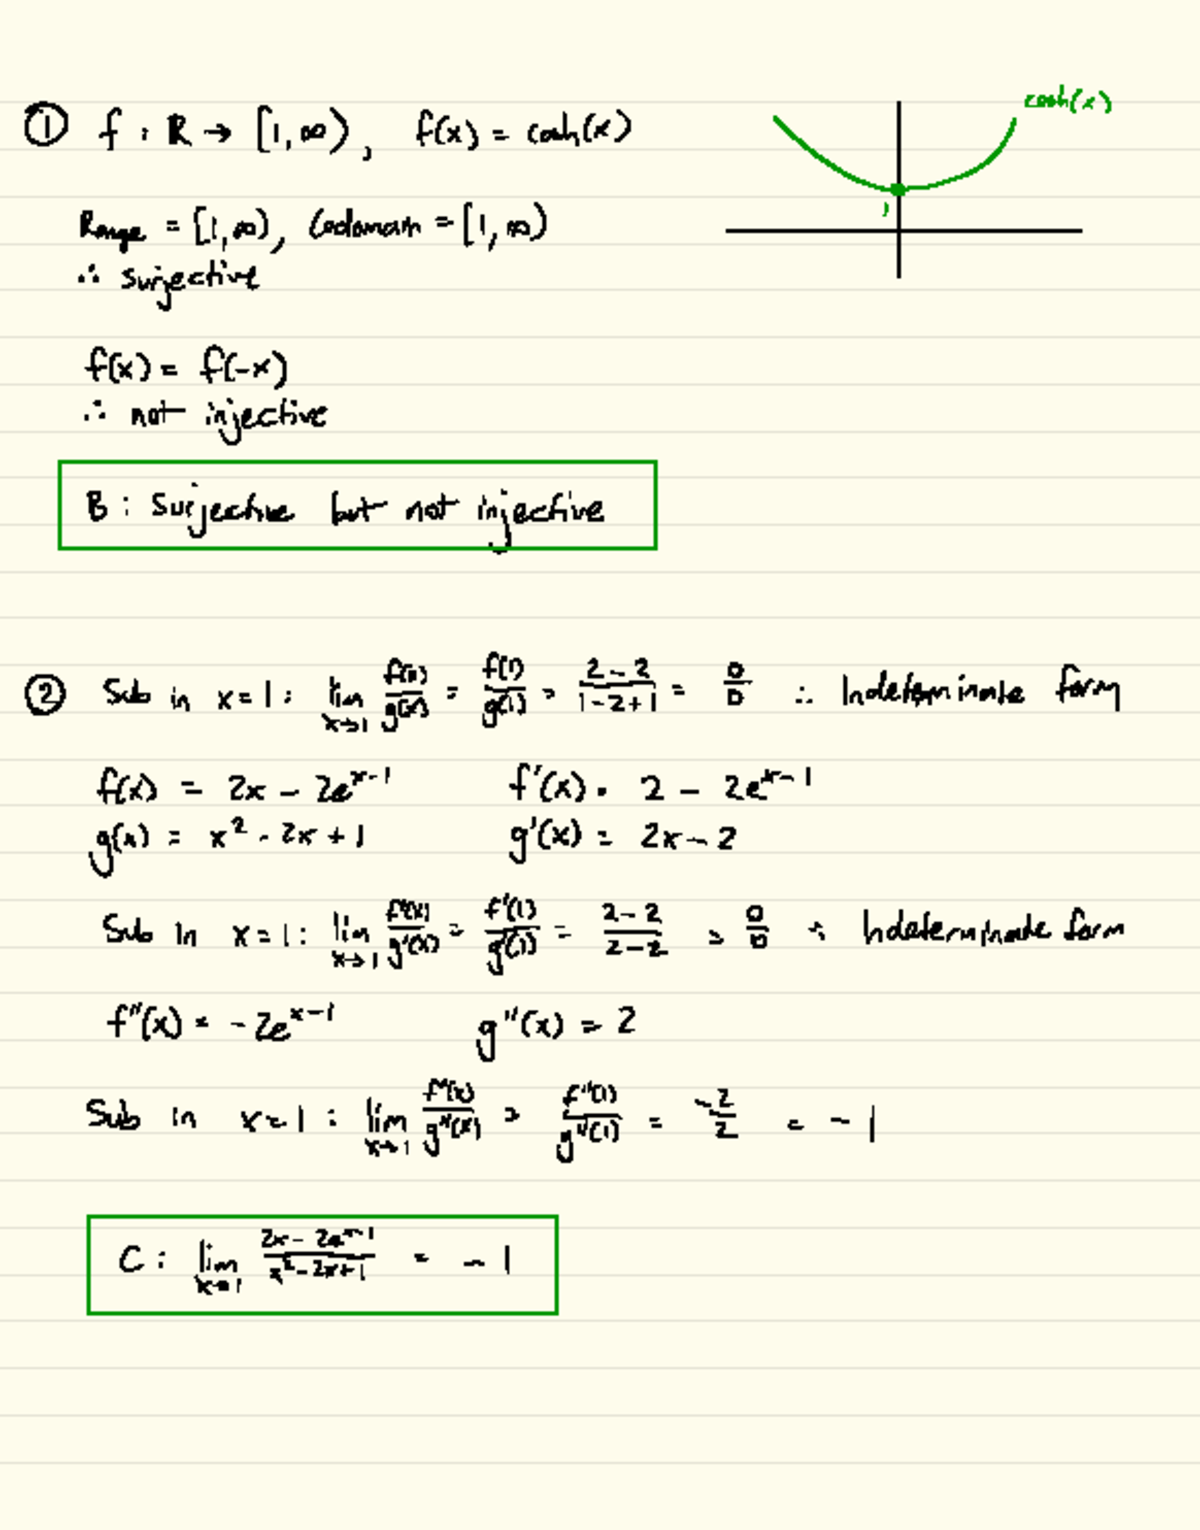 ① f : R → [1, ∞), f(x) = cosh(x)
cosh(x)
1
Range = [1, ∞), Codomain = [1, ∞)
∴ surjective
f(x) = f(-x)
∴ not injective
B : Surjective but not injective
② Sub in x = 1 : lim x→1 f(x)/g(x) = f(1)/g(1) = (2-2)/(1-2+1) = 0/0 ∴ Indeterminate form
f(x) = 2x - 2e^(x-1) f'(x) = 2 - 2e^(x-1)
g(x) = x² - 2x + 1 g'(x) = 2x - 2
Sub in x = 1 : lim x→1 f'(x)/g'(x) = f'(1)/g'(1) = (2-2)/(2-2) = 0/0 ∴ Indeterminate form
f''(x) = -2e^(x-1) g''(x) = 2
Sub in x = 1 : lim x→1 f''(x)/g''(x) = f''(1)/g''(1) = -2/2 = -1
C : lim x→1 (2x - 2e^(x-1))/(x² - 2x + 1) = -1